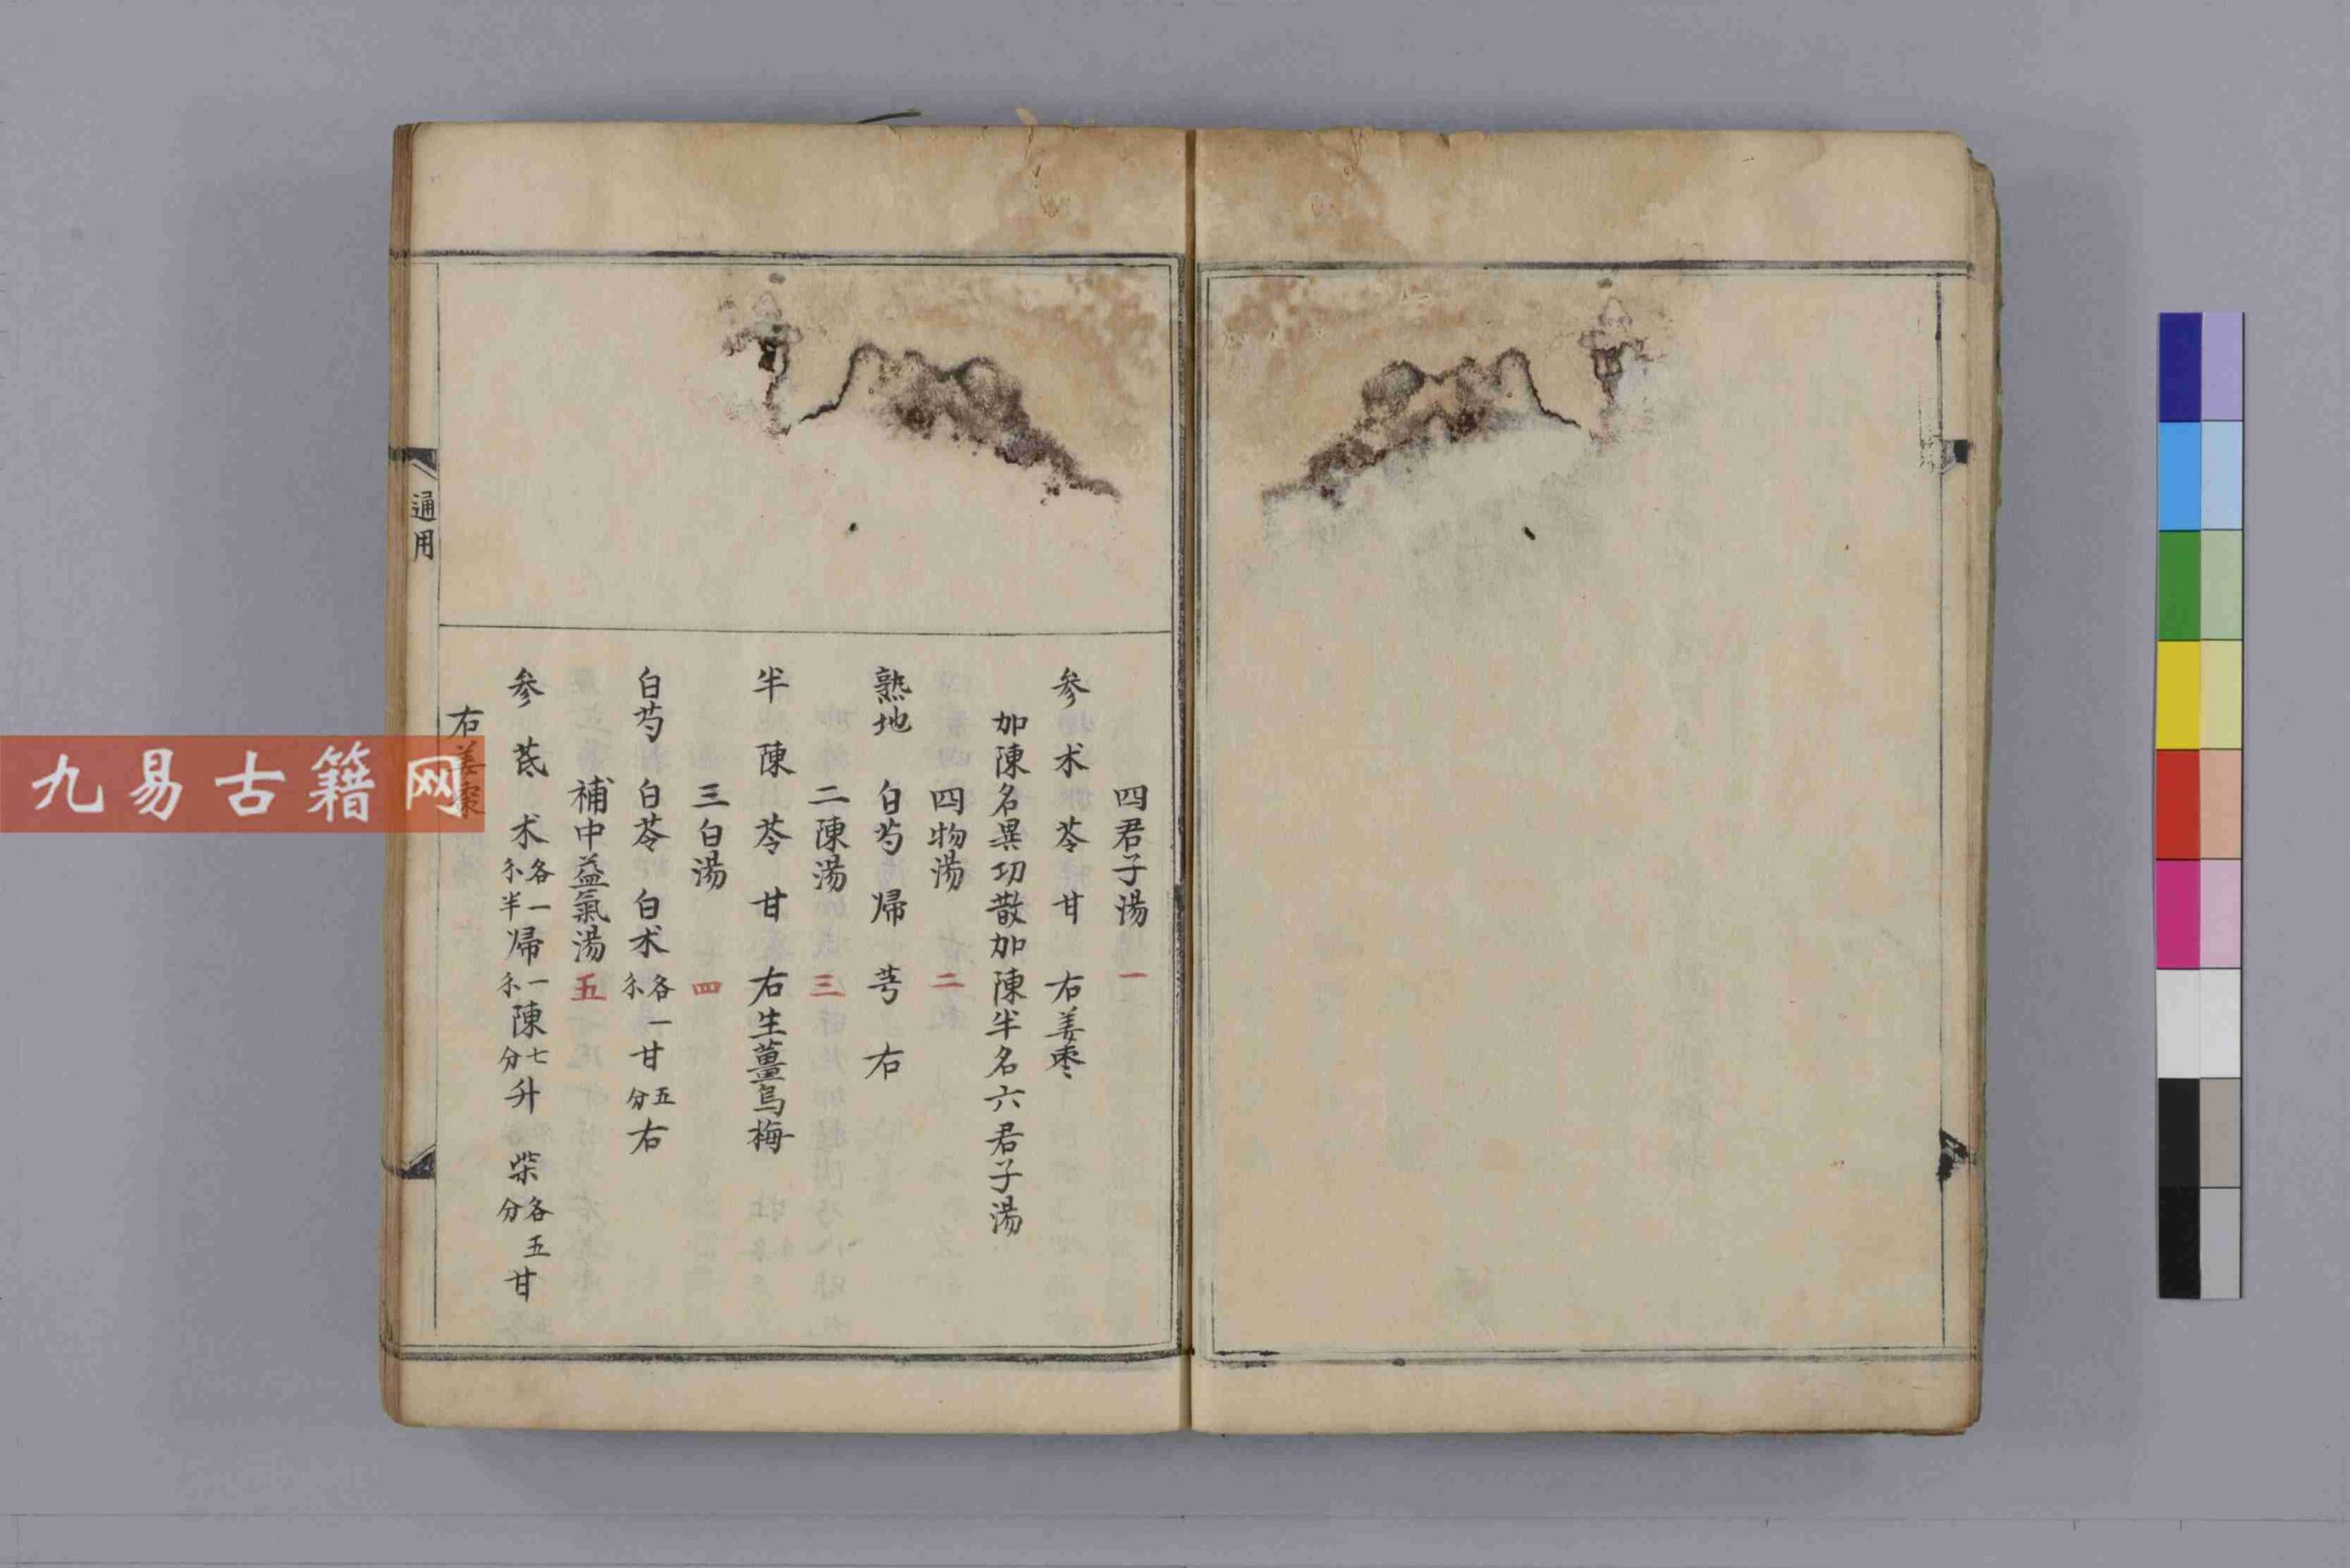 四君子湯 一
参 朮 苓 甘 右姜枣
加陳名異功散加陳半名六君子湯
四物湯 二
熟地 白芍 帰 芎 右
二陳湯 三
半 陳 苓 甘 右生薑烏梅
三白湯 四
白芍 白苓 白朮各一 甘五分 右
補中益氣湯 五
参 芪 朮各一 半 帰一 陳七分 升 柴各五分 甘
右姜棗
通用
九易古籍网